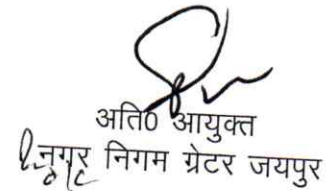 अति0 आयुक्त
नगर निगम ग्रेटर जयपुर